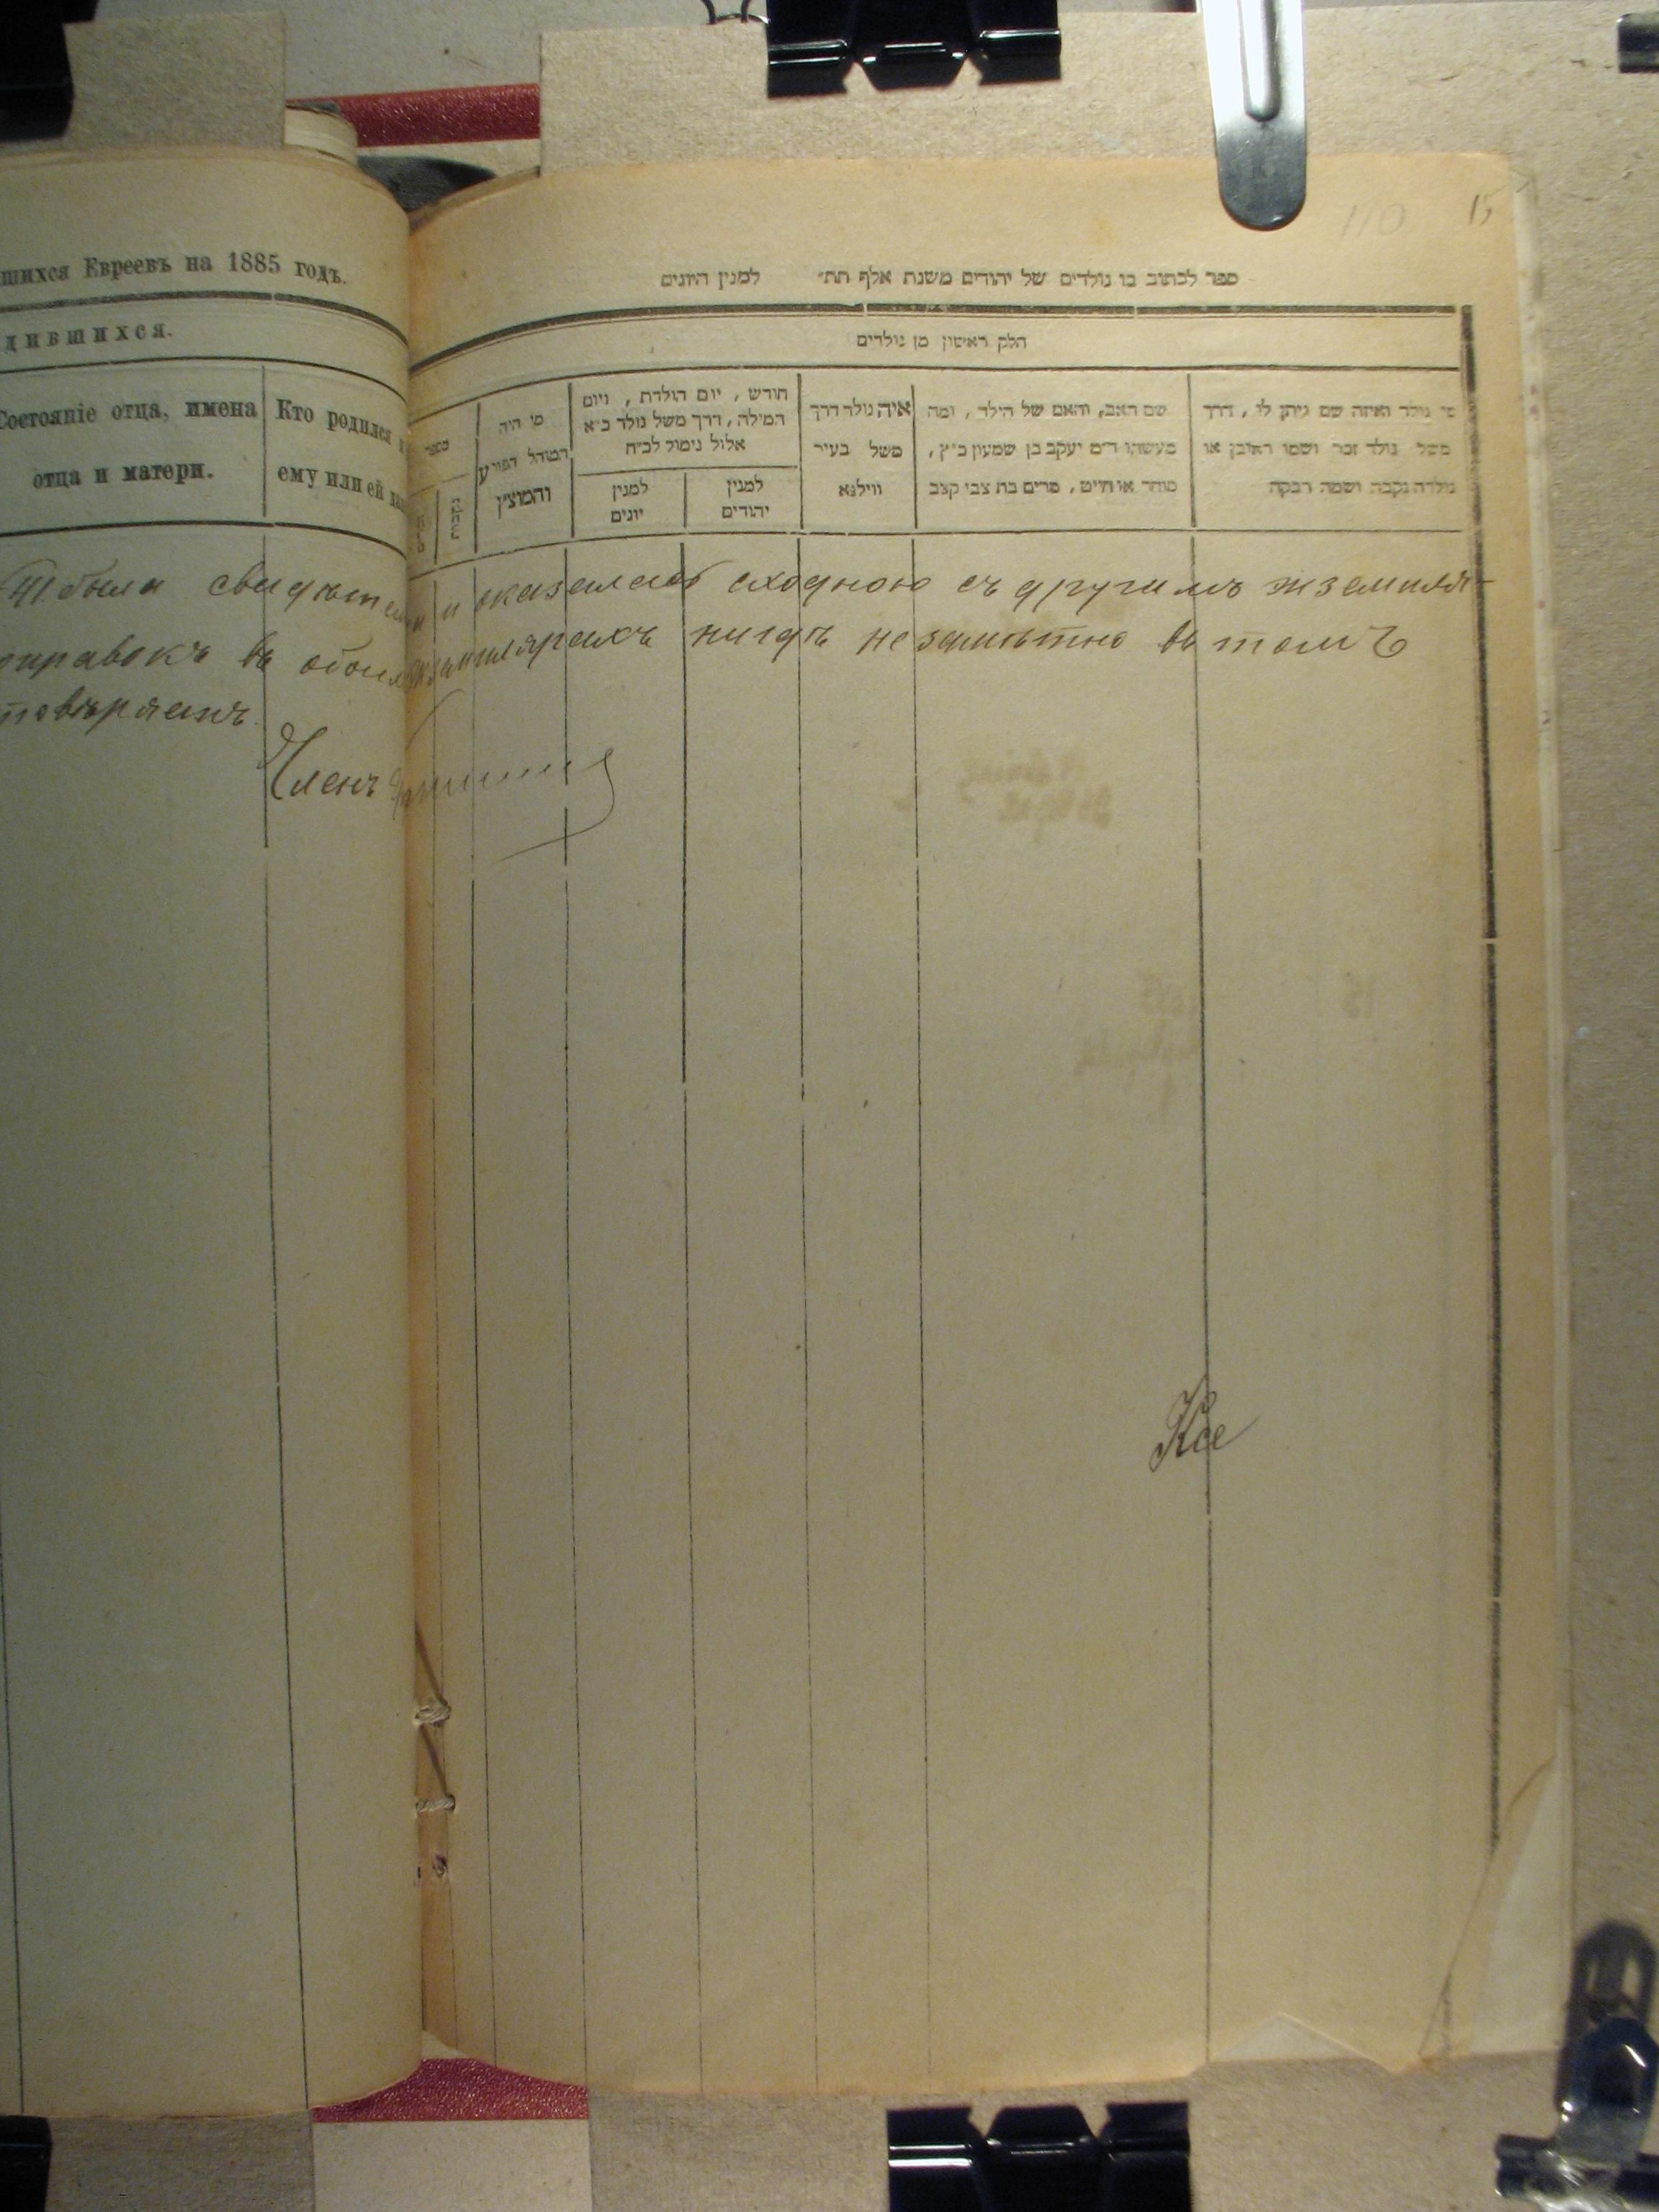 шихся Евреевъ на 1885 годъ.
дившихся.
Состояніе отца, имена
отца и матери.
Кто родился и
ему или ей
110 15
ספר לכתוב בו נולדים של יהודים משנת אלף תת״ למנין היונים
חלק ראשון מן נולדים
מספר
נקבות
מי היה
המוהל הפורע
והמוצץ
חודש, יום הולדת, ויום
המילה, דרך משל נולד כ״א
אלול נימול לכ״ח
למנין
יונים
למנין
יהודים
איה נולד דרך
משל בעיר
ווילנא
שם האב, והאם של הילד, ומה
מעשהו ד״מ יעקב בן שמעון כ״ץ,
סוחר או חייט, מרים בת צבי קצב
מי נולד ואיזה שם ניתן לו, דרך
משל נולד זכר ושמו ראובן או
נולדה נקבה ושמה רבקה
была и оказалась сходною съ другимъ экземпля-
справокъ въ обоихъ экземплярахъ нигдѣ не замѣтно въ томъ
Членъ
Ксе